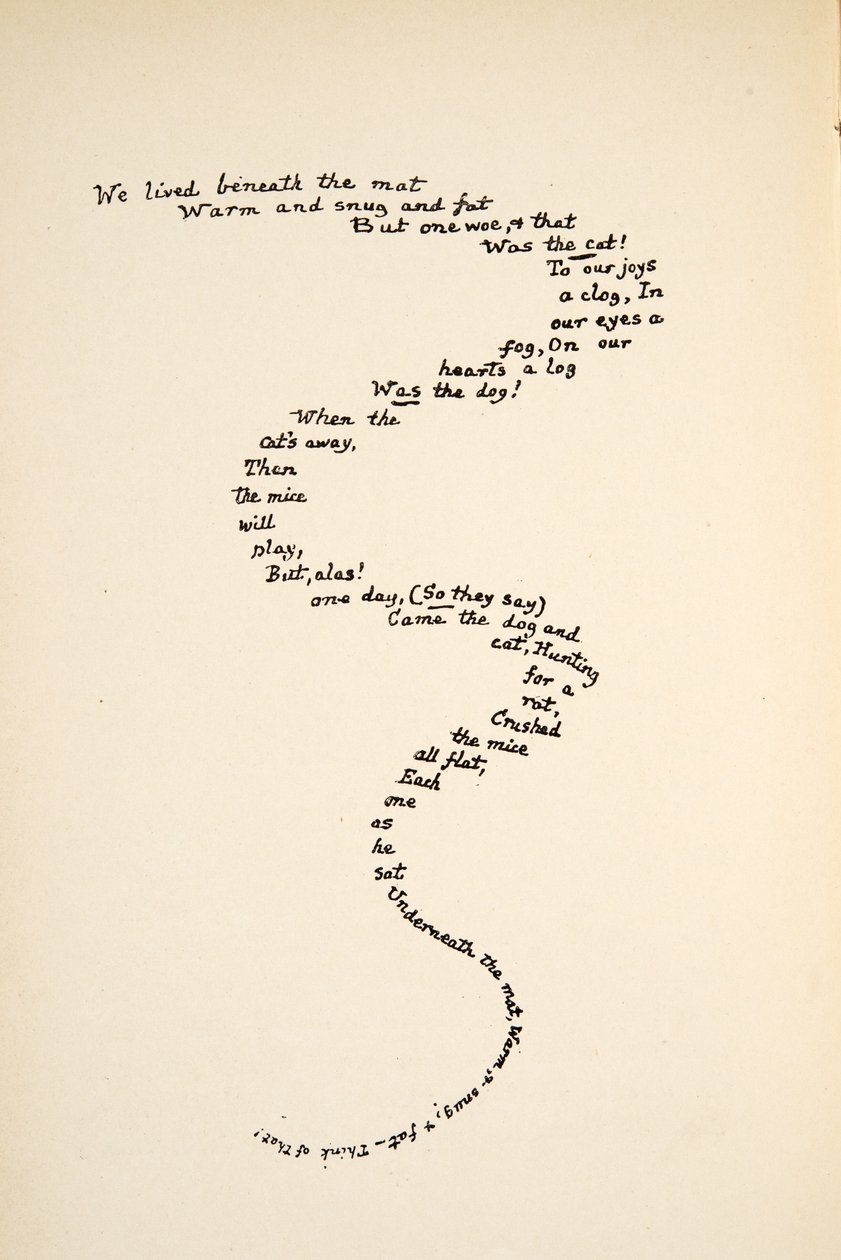 We lived beneath the mat
Warm and snug and fat
But one woe, & that
Was the cat!
To our joys
a clog, In
our eyes a
fog, On our
hearts a log
Was the dog!
When the
Cat's away,
Then
the mice
will
play,
But, alas!
one day, (So they say)
Came the dog and
cat, Hunting
for a
rat,
Crushed
the mice
all flat,
Each
one
as
he
sat
Underneath the mat, Warm, & snug, & fat – Think of that!